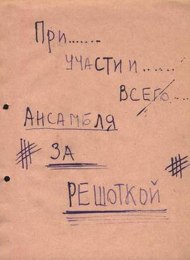 При.......
УЧАСТИИ.....
ВСЕГО....
АНСАМБЛЯ
ЗА
РЕШОТКОЙ